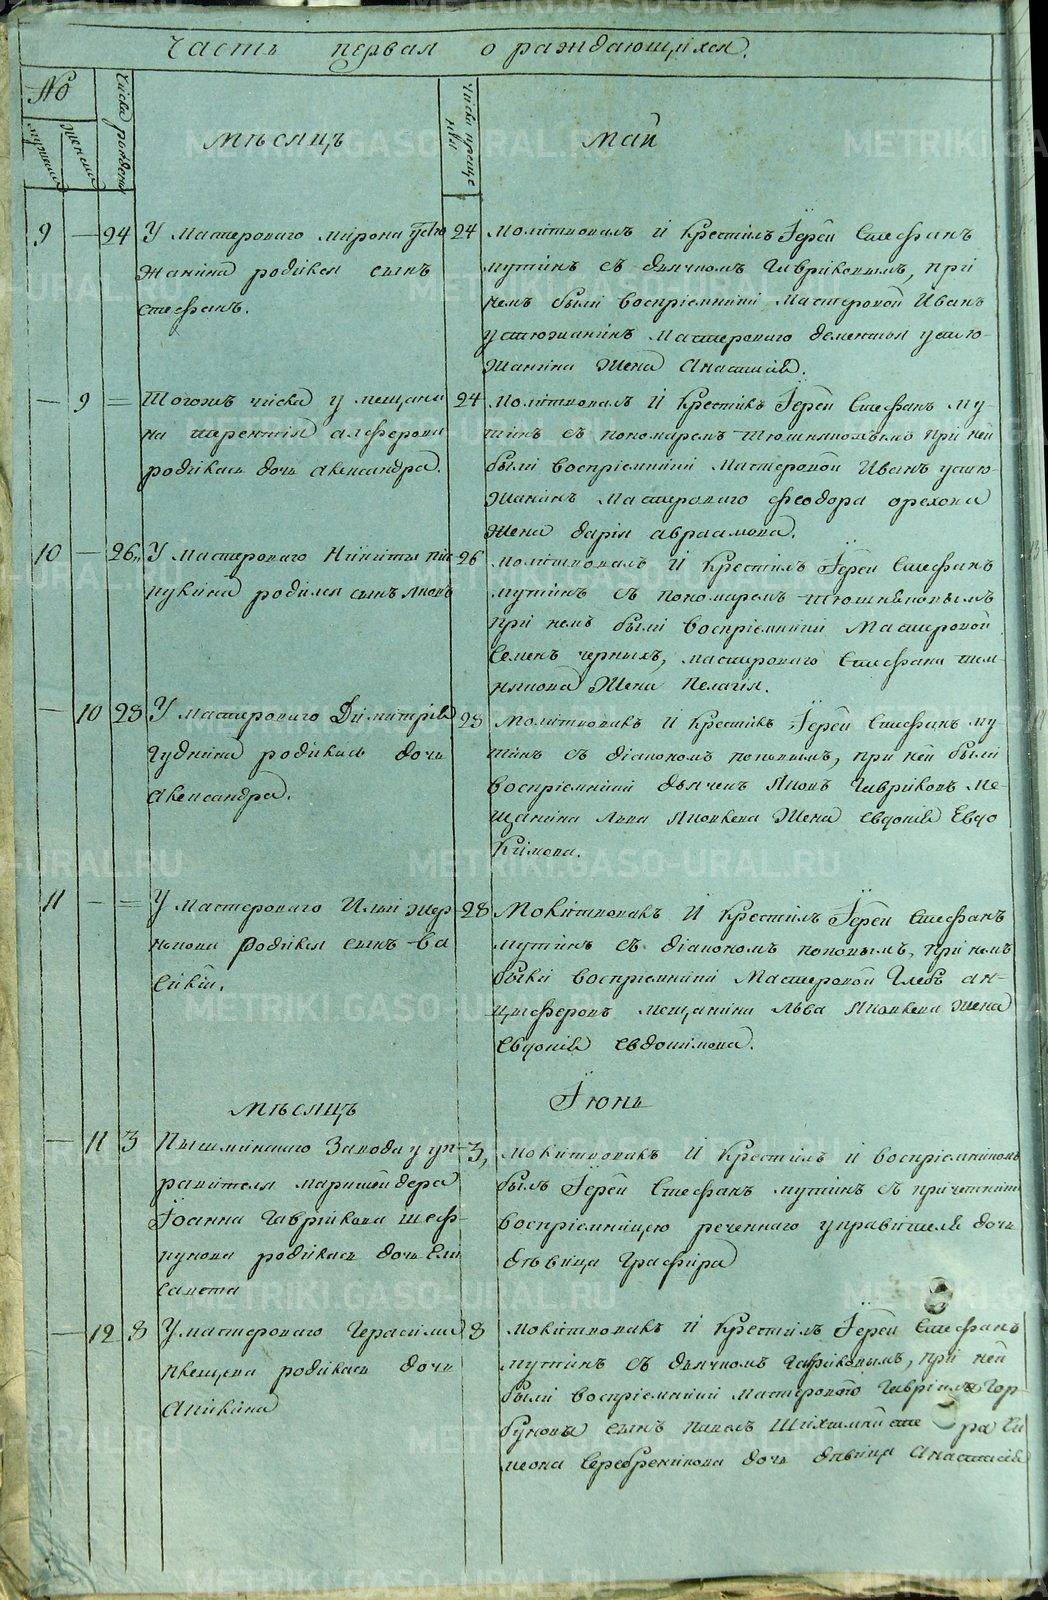 Часть первая о раждающихся.
№
мужеска
женска
Числа рождены
Мѣсяцъ
Числа крещенія
Май
9 — 24 У Мастероваго Мирона Устю-
жанина родился сынъ
Стефанъ.
24 Молитвовалъ и крестилъ Іерей Стефанъ
Мутинъ съ дьячкомъ Гавриковымъ, при
немъ были воспріемники Мастеровой Иванъ
Устюжанинъ Мастероваго Дементья Устю-
жанина жена Анастасія.
— 9 = Тогожъ числа у мещани-
на Терентія Алферова
родилась дочь Александра.
24 Молитвовалъ и крестилъ Іерей Стефанъ Му-
тинъ съ пономаремъ при ней
были воспріемники Мастеровой Иванъ Устю-
жанинъ Мастероваго Феодора Орехова
жена Дарія Авраамова.
10 — 26 У Мастероваго Никиты
родился сынъ Яковъ
26 Молитвовалъ и крестилъ Іерей Стефанъ
Мутинъ съ пономаремъ
при немъ были воспріемники Мастеровой
Семенъ Черныхъ, мастероваго Стефана
жена Пелагія.
— 10 28 У мастероваго Димитрія
Гудкина родилась дочь
Александра.
28 Молитвовалъ и крестилъ Іерей Стефанъ Му-
тинъ съ діакономъ Поповымъ, при ней были
воспріемники дьячекъ Яковъ Гавриковъ ме-
щанина Льва Яковлева жена Евдокія Евдо
кимова.
11 — = У мастероваго Ильи
родился сынъ Ва
силій.
28 Молитвовалъ и крестилъ Іерей Стефанъ
Мутинъ съ діакономъ Поповымъ, при немъ
были воспріемники Мастеровой Глебъ Ан-
цыферовъ мещанина Льва Яковлева жена
Евдокія Евдокимова.
Мѣсяцъ
Іюнь
— 11 3 Пышминскаго Завода у уп-
равителя маркшейдера
Іоанна Гаврилова
родилась дочь Ели
савета
3, Молитвовалъ и крестилъ и воспріемникомъ
былъ Іерей Стефанъ Мутинъ съ причетники
воспріемницею реченнаго управителя дочь
дѣвица Графира
— 12 8 У мастероваго Герасима
Плещева родилась дочь
Акилина
8 Молитвовалъ и крестилъ Іерей Стефанъ
Мутинъ съ дьячкомъ Гавриковымъ, при ней
были воспріемники мастероваго Гавріила Гор-
бунова сынъ Павелъ Шихтмейсте ра Си
меона Серебреникова дочь дѣвица Анастасія
METRIKI.GASO-URAL.RU